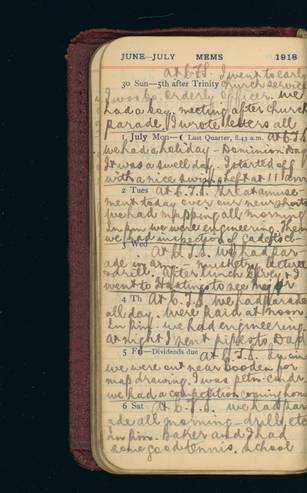 JUNE—JULY MEMS 1918
At C.T.S. I went to early
30 Sun—5th after Trinity church service
I was by. orderly officer. We
had a boy. meeting after church
Parade. I wrote letters all
1 July Mon— ☾ Last Quarter, 8.43 a.m. At C.T.S.
we had a holiday - Dominion Day
It was a swell day. I started off
with a nice swim, left at 11 am
2 Tues At C.T.S. Great amuse-
ment today over our new shorts
We had mapping all morning
In p.m. we were engineering. Then
we had inspection of
3 Wed At C.T.S. We had par-
ade in a.m. musketry, lecture
& drill. After lunch & I
went to Hastings to see
4 Th At C.T.S. We had parade
all day. Were paid at noon.
In p.m. we had engineering.
At night I sent pips to Dad
5 F—Dividends due At C.T.S. In a.m.
we were out near Cooden for
map drawing. I was pltn. Comdr.
we had a competition coming home
6 Sat At C.T.S. we had par
ade all morning - drill, etc
In p.m. Baker and I had
some good tennis. School